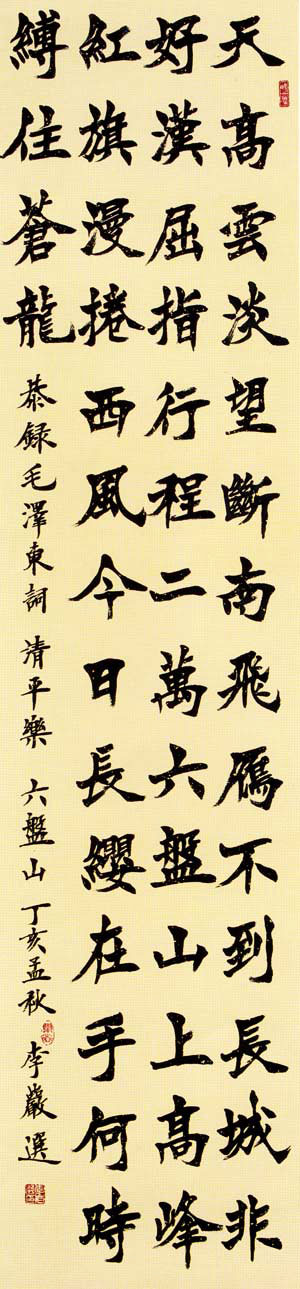 天高雲淡望斷南飛鴈不到長城非
好漢屈指行程二萬六盤山上高峰
紅旗漫捲西風今日長纓在手何時
縛住蒼龍
恭録毛澤東詞 清平樂 六盤山 丁亥孟秋 李嚴選